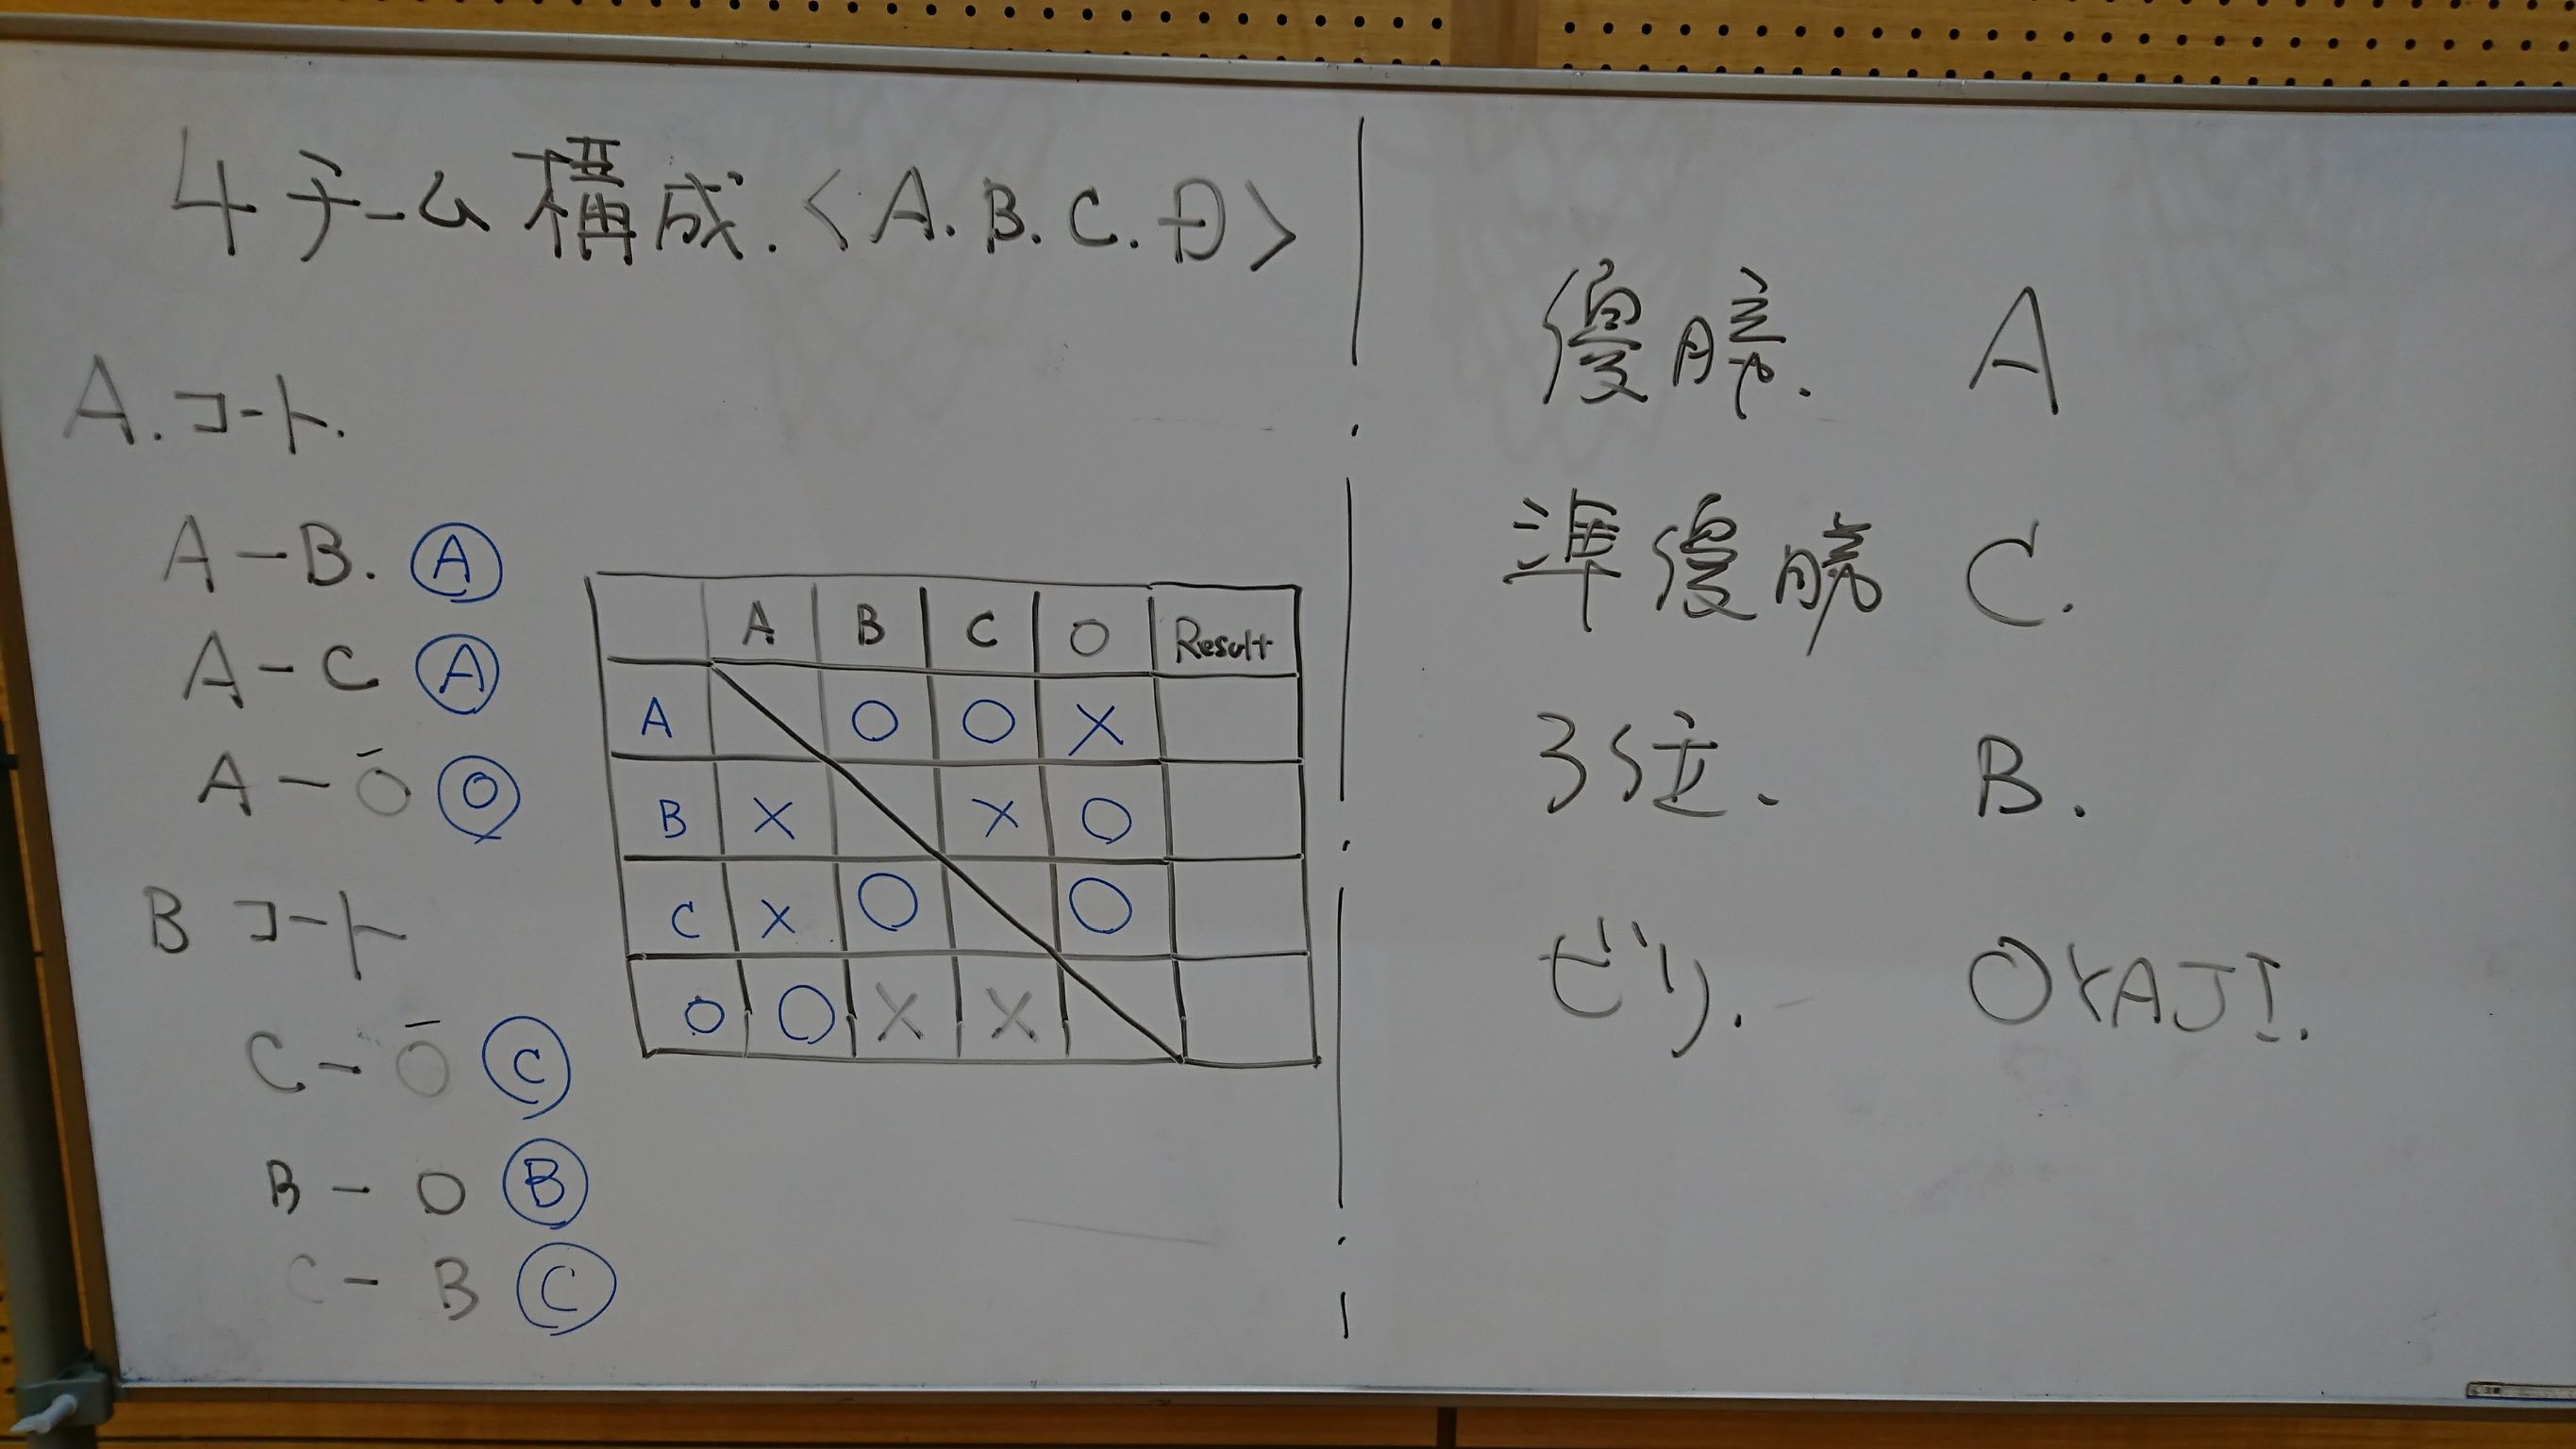 4チーム構成.<A.B.C.D>
A.コート.
A-B. A
A-C A
A-O O
B コート
C-O C
B-O B
C-B C
A B C O Result
A O O X
B X X O
C X O O
O O X X
優勝. A
準優勝 C.
3位. B.
ビリ. OYAJI.